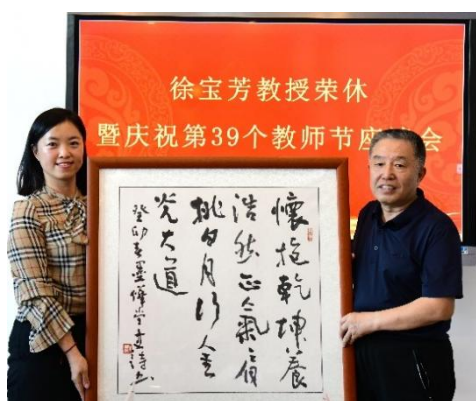 徐宝芳教授荣休
暨庆祝第39个教师节座谈会
懷抱乾坤養
浩然正氣肩
挑日月行金
光大道
癸卯